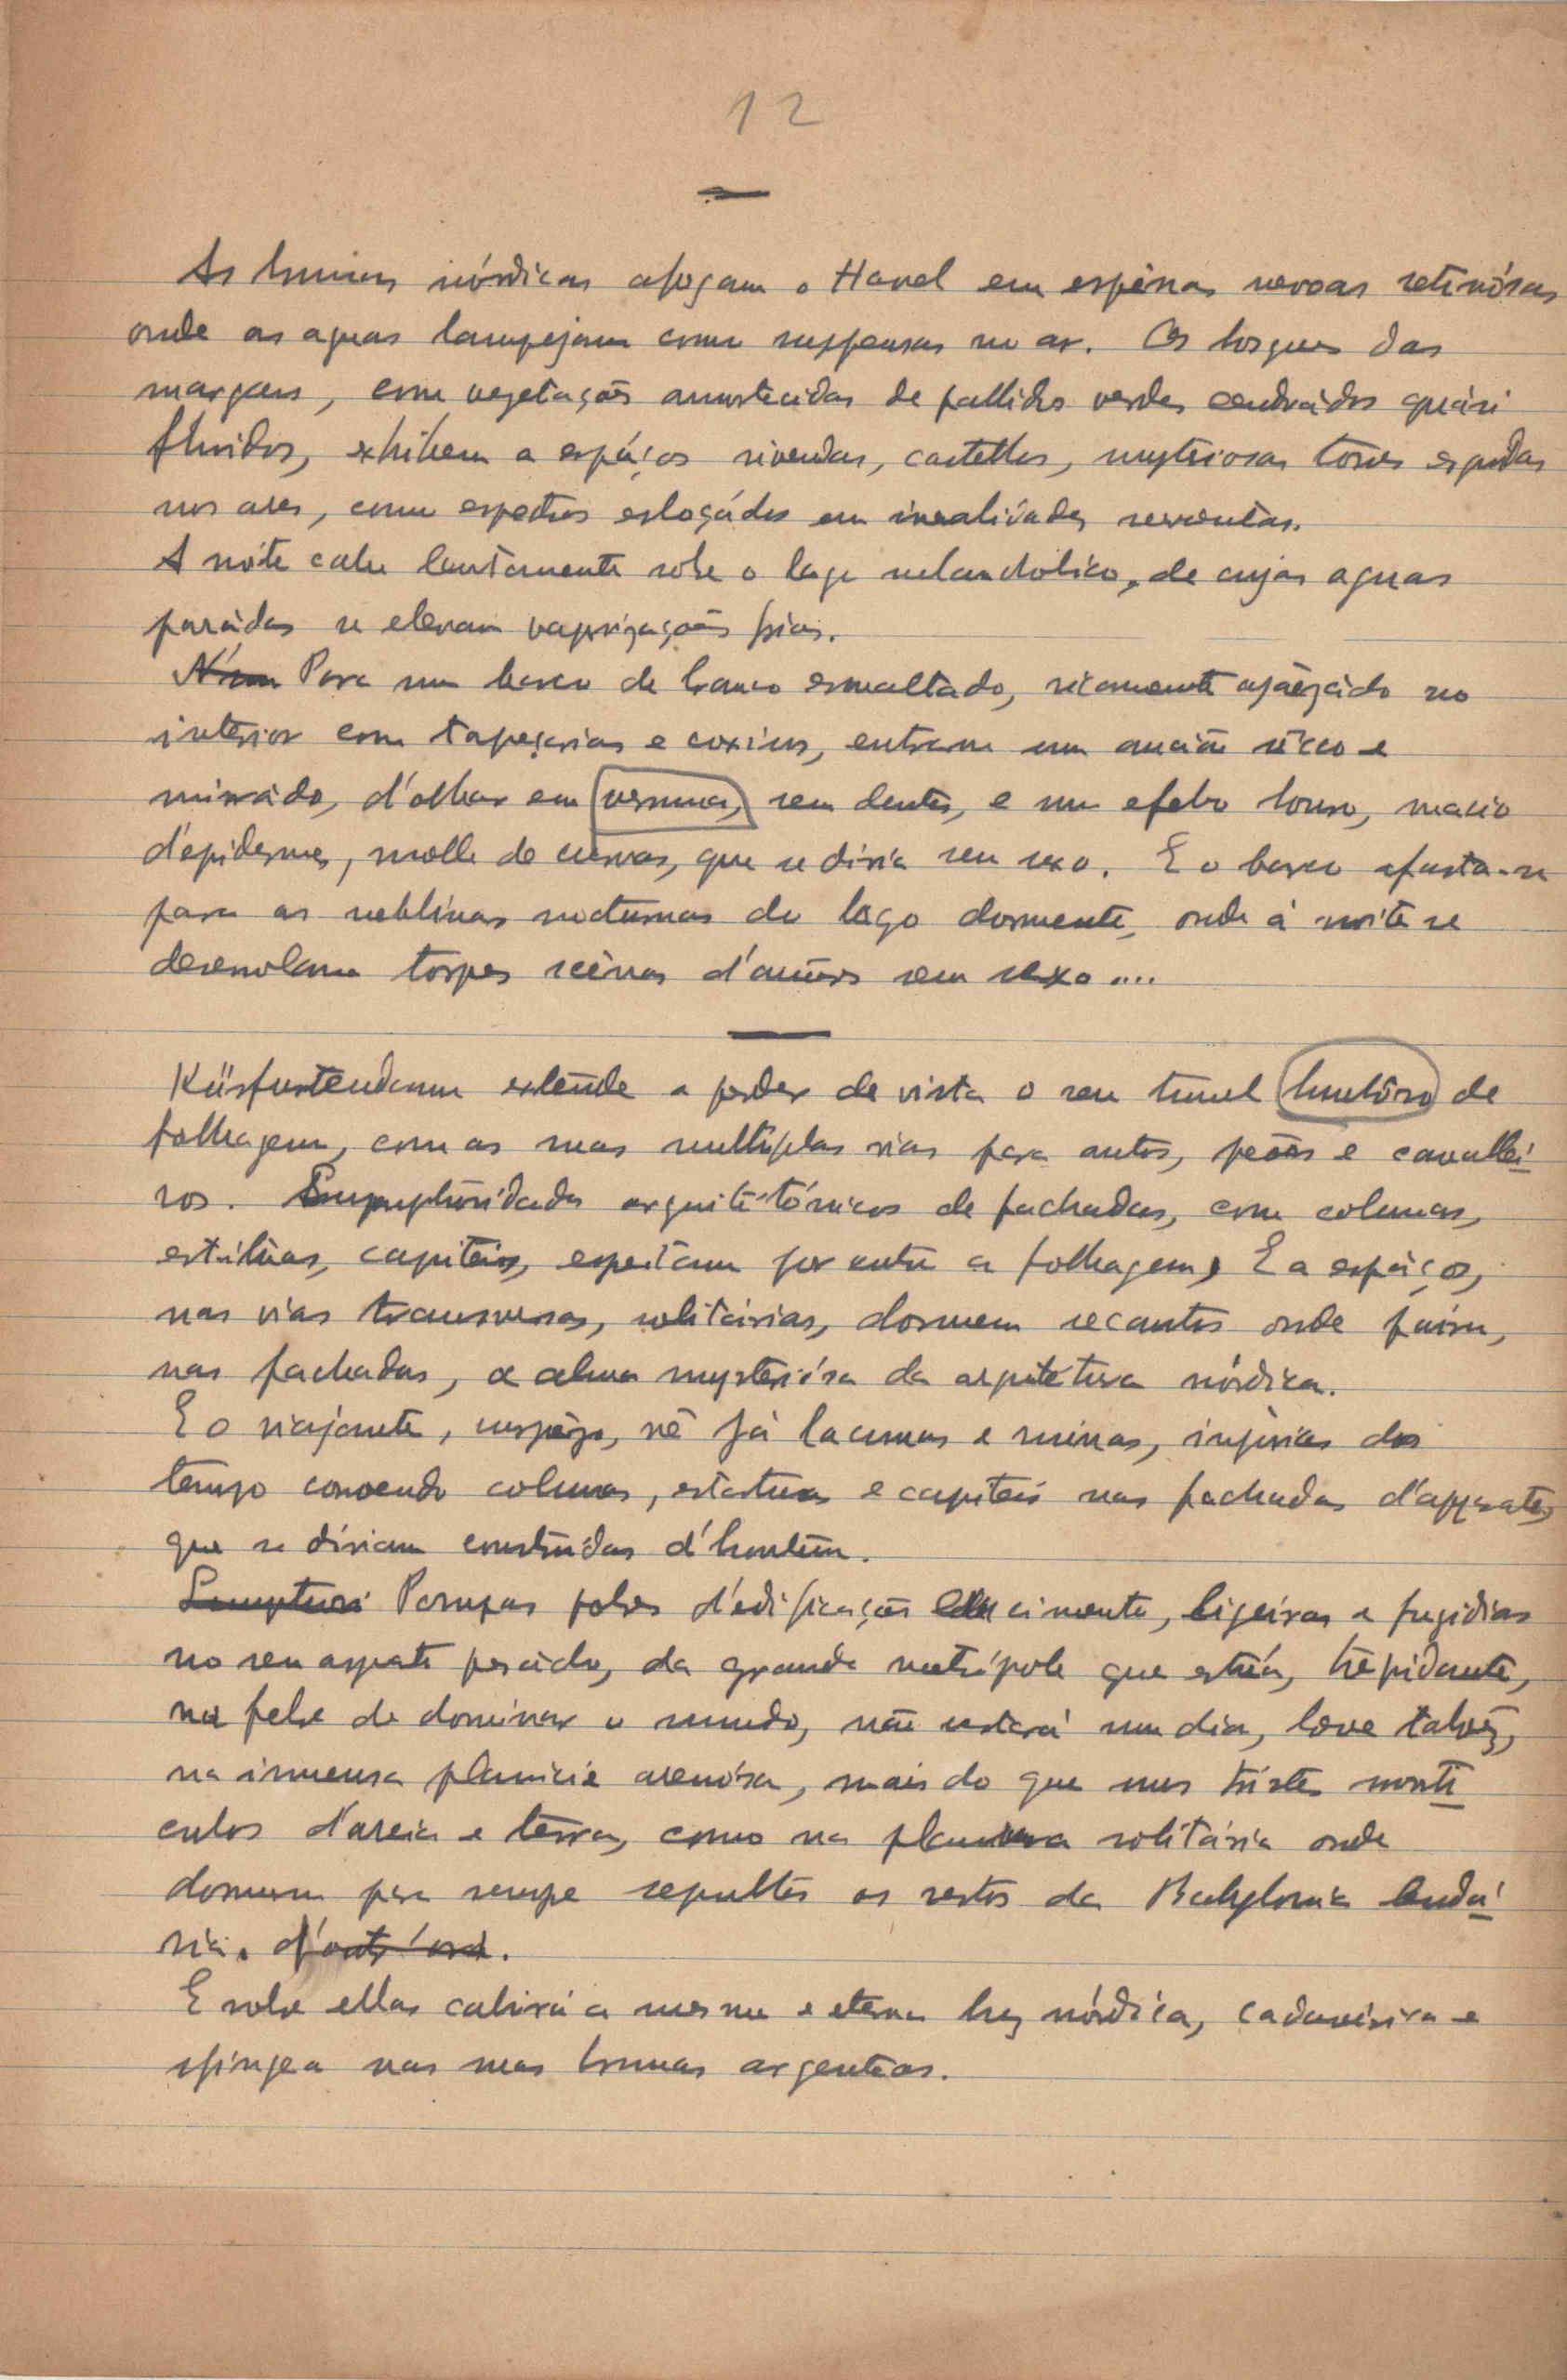 12
As brumas nórdicas afogam o Havel em espêssas nevoas setinósas
onde as aguas lampejam como suspensas no ar. Os bosques das
margens, com vegetaçoēs amortecidas de pallidos verdes cendrádos quási
fluidos, exhibem a espáços vivendas, castellos, mysteriosas torres erguidas
nos ares, como espectros esboçádos em irrealidades
A noite cahe lentamente sobre o lago melancholico, de cujas aguas
parádas se elevam vaporizaçoēs frias.
N'um Para um barco de branco esmaltado, ricamente ajaezádo no
interior com tapeçarias e coxins, entram um ancião sêcco e
mirrado, d'olhar em verruma, sem dentes, e um efebo louro, macio
d'epiderme, molle de curvas, que se diria sem sexo. E o barco afasta-se
para as neblinas nocturnas do lago dormente, onde á noite se
desenrolam torpes scênas d'amôres sem sexo....
Kürfurstendamm extende a perder de vista o seu tunel umbrôso de
folhagem, com as suas multiplas vias para autos, peões e cavallei
ros. Sumptuosidades arquitétónicas de fachadas, com colunas,
estátuas, capiteis, espreitam por entre a folhagem, E a espáços,
nas vias transversas, solitárias, dormem recantos onde paira,
nas fachadas, a alma mysteriósa da arquitetura nórdica.
E o viajante, surprezo, vê já lacunas e ruinas, injúrias do
tempo corroendo colunas, estatuas e capiteis nas fachadas d'apparato,
que se diriam construidas d'hontem.
Sumptuosi Pompas pobres d'edificaçoēs em cimento, ligeiras e fugidias
no seu aspeto pesádo, da grande metrópole que estúa, trepidante,
na febre de dominar o mundo, não restará um dia, breve talvez,
na immensa planicie arenósa, mais do que uns tristes monti
culos d'areia e terra, como na planura solitária onde
dormem para sempre sepultos os restos da Babylonia lendá
ria. d'outr'ora.
E sobre ellas cahirá a mesma e eterna luz nórdica, cadavérica e
sfingea nas suas brumas argenteas.